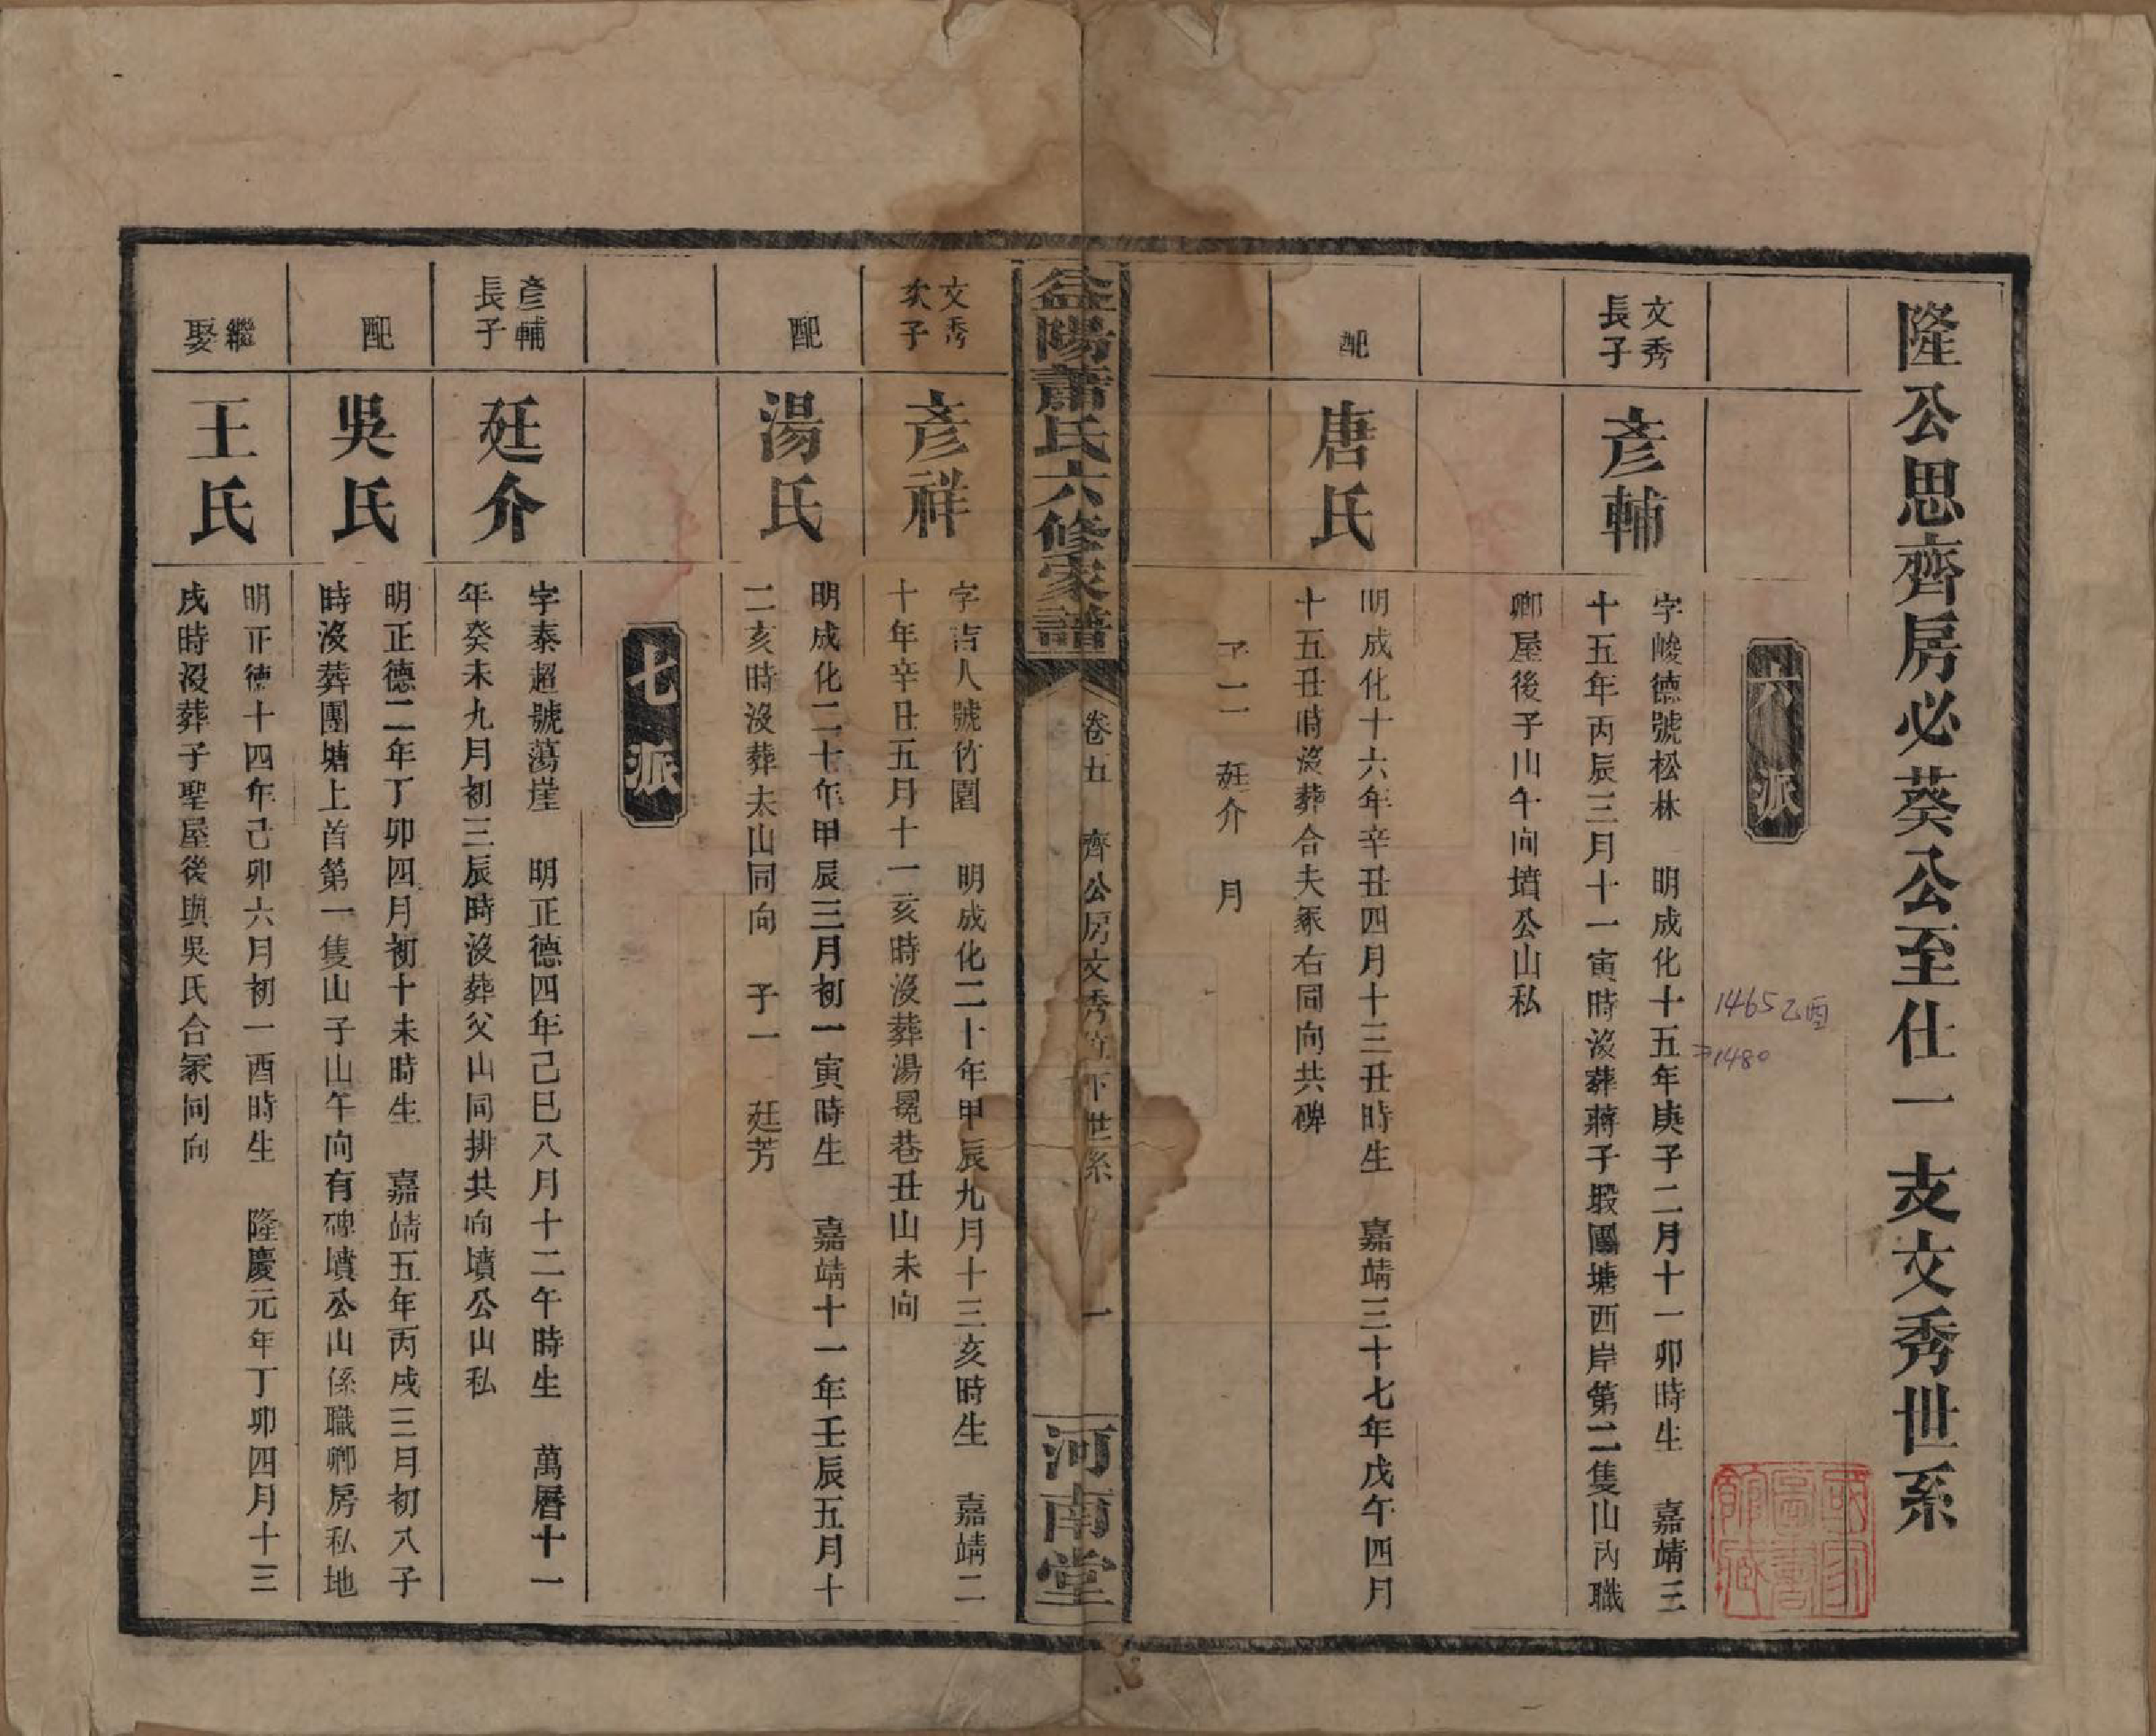 隆公思齊房必葵公至仕一支文秀世系
六派
文秀
長子
彥輔
字峻德號松林　明成化十五年庚子二月十一卯時生　嘉靖三
十五年丙辰三月十一寅時沒葬蔣子塅團塘西岸第二隻山內職
卿屋後子山午向墳公山私
1465乙酉
1480
配
唐氏
明成化十六年辛丑四月十三丑時生　嘉靖三十七年戊午四月
十五丑時沒葬合夫冢右同向共碑
子二　廷介　月
益陽蕭氏六修家譜
卷五　齊公房文秀位下世系
一
河南堂
文秀
次子
彥祥
字吉人號竹園　明成化二十年甲辰九月十三亥時生　嘉靖二
十年辛丑五月十一亥時沒葬湯冕巷丑山未向
配
湯氏
明成化二十年甲辰三月初一寅時生　嘉靖十一年壬辰五月十
二亥時沒葬太山同向　子一　廷芳
七派
彥輔
長子
廷介
字泰超號蕩崖　明正德四年己巳八月十二午時生　萬曆十一
年癸未九月初三辰時沒葬父山同排共向墳公山私
配
吳氏
明正德二年丁卯四月初十未時生　嘉靖五年丙戌三月初八子
時沒葬團塘上首第一隻山子山午向有碑墳公山係職卿房私地
繼
娶
王氏
明正德十四年己卯六月初一酉時生　隆慶元年丁卯四月十三
戌時沒葬子聖屋後與吳氏合冢同向
國家圖書館藏